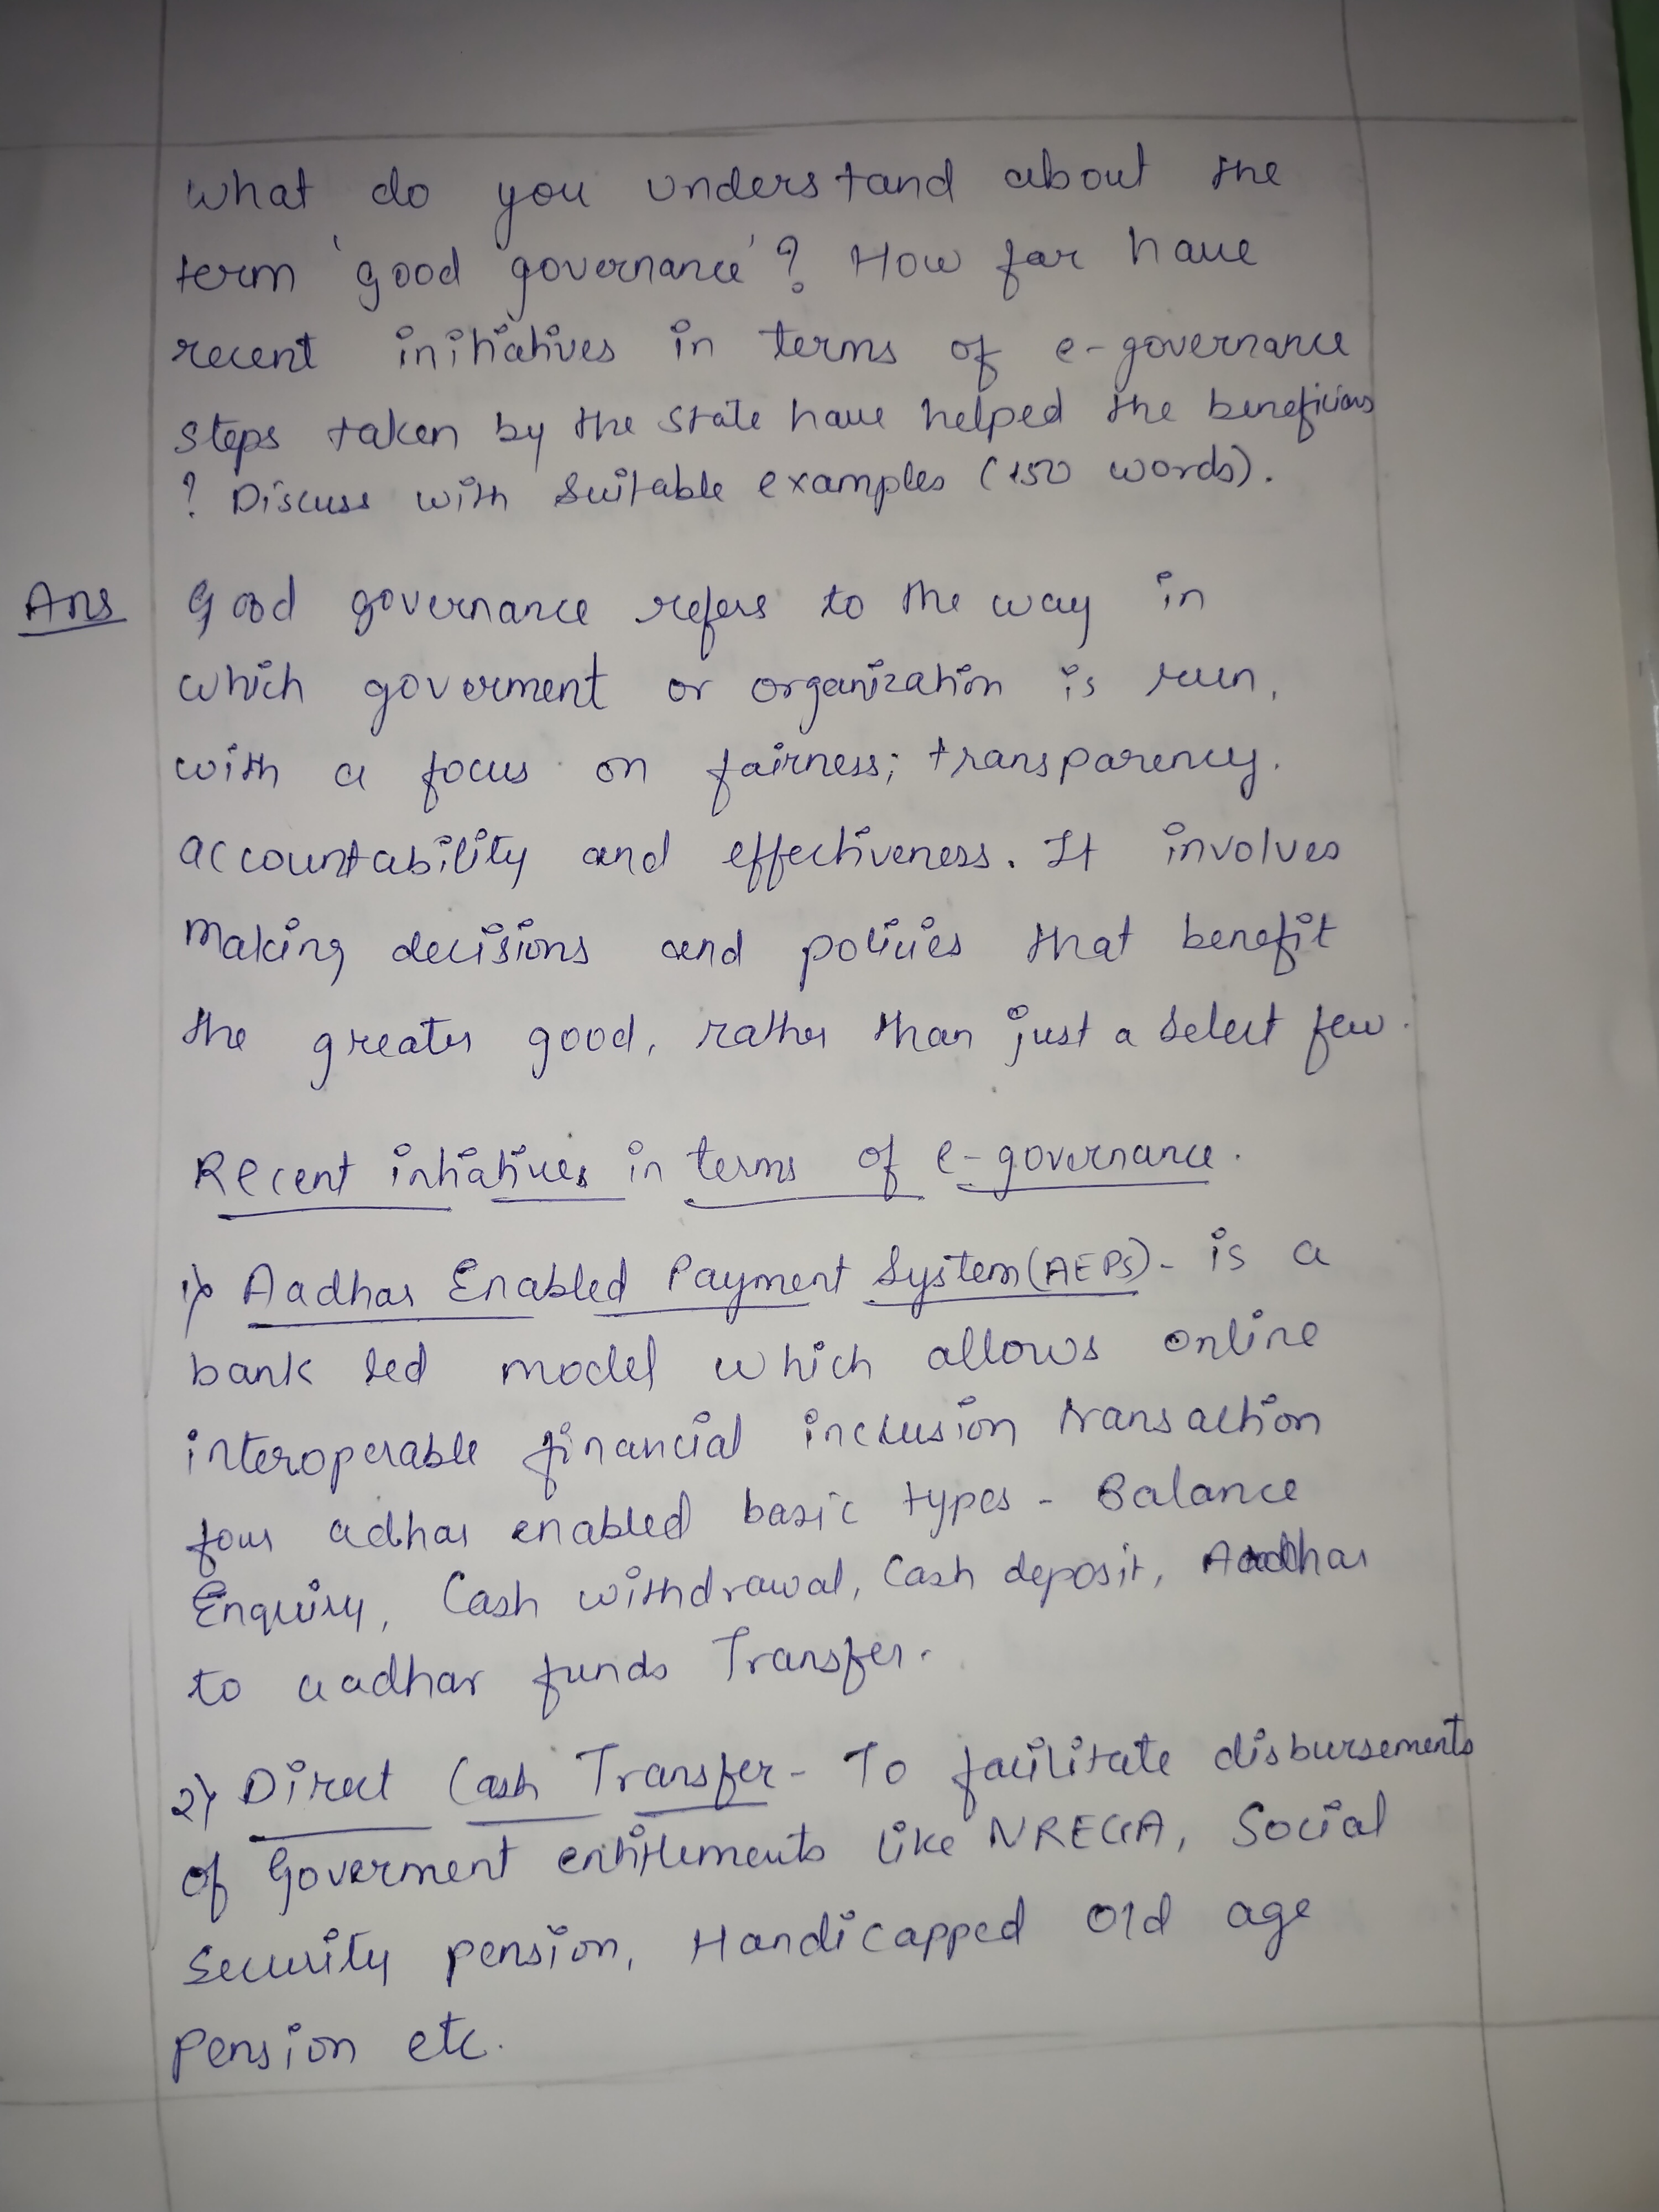 What do you understand about the
term 'good governance'? How far have
recent initiatives in terms of e-governance
steps taken by the state have helped the
? Discuss with suitable examples (150 words).
Ans Good governance refers to the way in
which goverment or organization is run,
with a focus on fairness; transparency.
accountability and effectiveness. It involves
making decisions and policies that benefit
the greater good, rather than just a select few.
Recent intiatives in terms of e-governance.
1) Aadhar Enabled Payment System (AEPS) - is a
bank led model which allows online
interoperable financial inclusion transaction
four adhar enabled basic types - Balance
Enquiry, Cash withdrawal, Cash deposit, Aadhar
to aadhar funds Transfer.
2) Direct Cash Transfer - To facilitate disbursements
of Goverment entitlements like NREGA, Social
Security pension, Handicapped old age
pension etc.